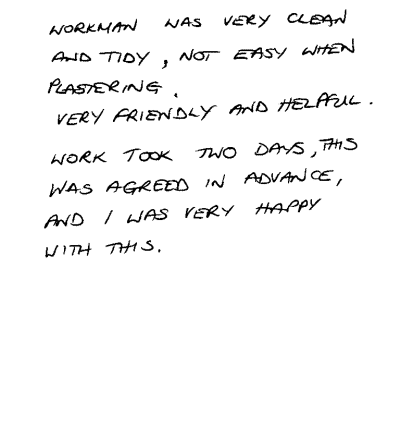 WORKMAN WAS VERY CLEAN
AND TIDY, NOT EASY WHEN
PLASTERING.
VERY FRIENDLY AND HELPFUL.
WORK TOOK TWO DAYS, THIS
WAS AGREED IN ADVANCE,
AND I WAS VERY HAPPY
WITH THIS.